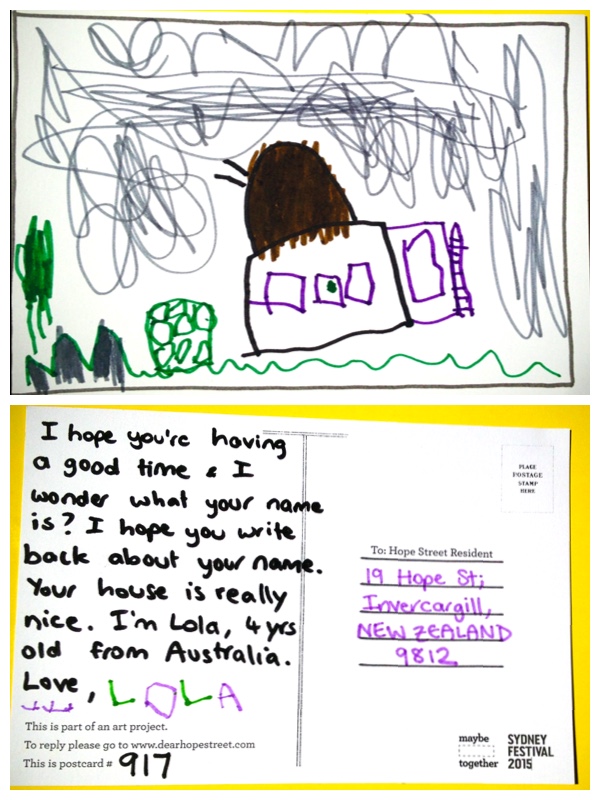 I hope you're having
a good time & I
wonder what your name
is? I hope you write
back about your name.
Your house is really
nice. I'm Lola, 4 yrs
old from Australia.
Love, LOLA
This is part of an art project.
To reply please go to www.dearhopestreet.com
This is postcard # 917
PLACE
POSTAGE
STAMP
HERE
To: Hope Street Resident
19 Hope St;
Invercargill,
NEW ZEALAND
9812
maybe
together
SYDNEY
FESTIVAL
2015